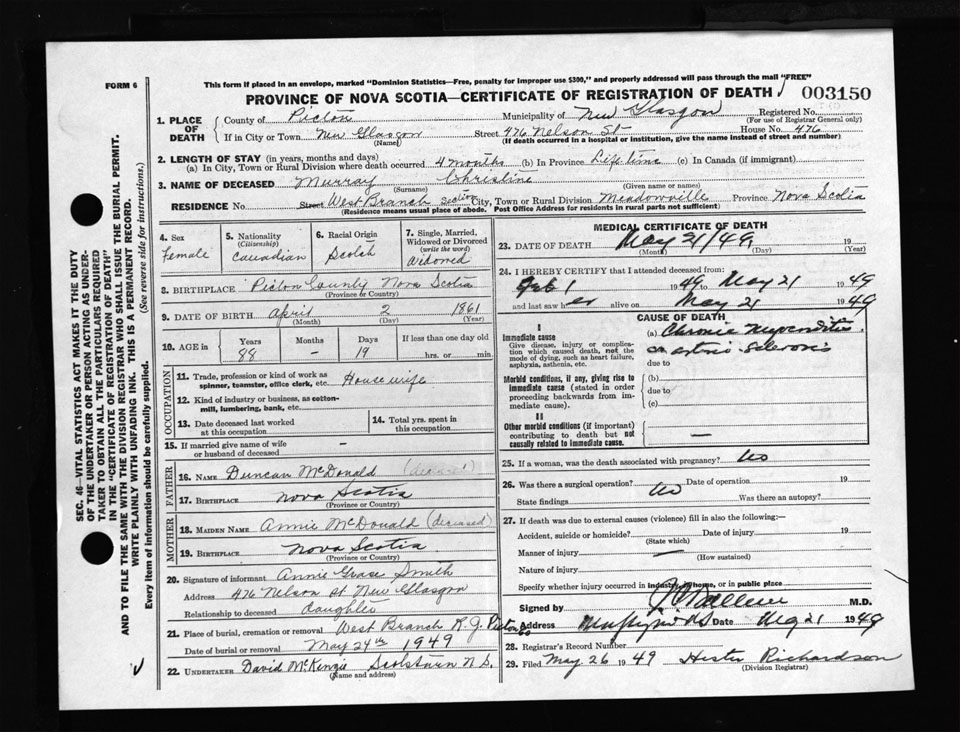 FORM 6
This form if placed in an envelope, marked "Dominion Statistics—Free, penalty for improper use $300," and properly addressed will pass through the mail "FREE"
PROVINCE OF NOVA SCOTIA—CERTIFICATE OF REGISTRATION OF DEATH
003150
1. PLACE OF DEATH
County of Pictou Municipality of New Glasgow Registered No.
(For use of Registrar General only)
If in City or Town New Glasgow Street 476 Nelson St House No. 476
(Name) (If death occurred in a hospital or institution, give the name instead of street and number)
2. LENGTH OF STAY (in years, months and days)
(a) In City, Town or Rural Division where death occurred 4 months (b) In Province Life time (c) In Canada (if immigrant)
3. NAME OF DECEASED Murray Christine
(Surname) (Given name or names)
RESIDENCE No. Street West Branch Section City, Town or Rural Division Meadowville Province Nova Scotia
(Residence means usual place of abode. Post Office Address for residents in rural parts not sufficient)
4. Sex
Female
5. Nationality
(Citizenship)
Canadian
6. Racial Origin
Scotch
7. Single, Married, Widowed or Divorced
(write the word)
Widowed
8. BIRTHPLACE Pictou County Nova Scotia
(Province or Country)
9. DATE OF BIRTH April 2 1861
(Month) (Day) (Year)
10. AGE in Years Months Days If less than one day old
88 – 19 hrs. or min.
OCCUPATION
11. Trade, profession or kind of work as spinner, teamster, office clerk, etc. House wife
12. Kind of industry or business, as cotton-mill, lumbering, bank, etc.
13. Date deceased last worked at this occupation
14. Total yrs. spent in this occupation
15. If married give name of wife or husband of deceased –
FATHER
16. NAME Duncan McDonald (deceased)
17. BIRTHPLACE Nova Scotia
(Province or Country)
MOTHER
18. MAIDEN NAME Annie McDonald (deceased)
19. BIRTHPLACE Nova Scotia
(Province or Country)
20. Signature of informant Annie Grace Smith
Address 476 Nelson St New Glasgow
Relationship to deceased daughter
21. Place of burial, cremation or removal West Branch R. J. Pictou Co
Date of burial or removal May 24th 1949
22. UNDERTAKER David McKenzie Scotsburn N.S.
(Name and address)
MEDICAL CERTIFICATE OF DEATH
23. DATE OF DEATH May 21/49 19
(Month) (Day) (Year)
24. I HEREBY CERTIFY that I attended deceased from:
Feb 1 1949 to May 21 1949
and last saw her alive on May 21 1949
CAUSE OF DEATH
I
Immediate cause
Give disease, injury or complication which caused death, not the mode of dying, such as heart failure, asphyxia, asthenia, etc.
(a) Chronic Myocarditis
arterio-Sclerosis
due to
Morbid conditions, if any, giving rise to immediate cause (stated in order proceeding backwards from immediate cause).
(b)
due to
(c)
II
Other morbid conditions (if important) contributing to death but not causally related to immediate cause.
—
25. If a woman, was the death associated with pregnancy? No
26. Was there a surgical operation? No Date of operation 19
State findings Was there an autopsy?
27. If death was due to external causes (violence) fill in also the following:—
Accident, suicide or homicide? Date of injury 19
(State which)
Manner of injury —
(How sustained)
Nature of injury
Specify whether injury occurred in industry, home, or in public place
Signed by M.D.
Address N.S Date May 21 1949
28. Registrar's Record Number
29. Filed May 26 1949 Hester Richardson
(Division Registrar)
SEC. 46—VITAL STATISTICS ACT MAKES IT THE DUTY
OF THE UNDERTAKER OR PERSON ACTING AS UNDER-
TAKER TO OBTAIN ALL THE PARTICULARS REQUIRED
IN THE "CERTIFICATE OF REGISTRATION OF DEATH"
AND TO FILE THE SAME WITH THE DIVISION REGISTRAR WHO SHALL ISSUE THE BURIAL PERMIT.
WRITE PLAINLY WITH UNFADING INK. THIS IS A PERMANENT RECORD.
Every item of information should be carefully supplied. (See reverse side for instructions.)